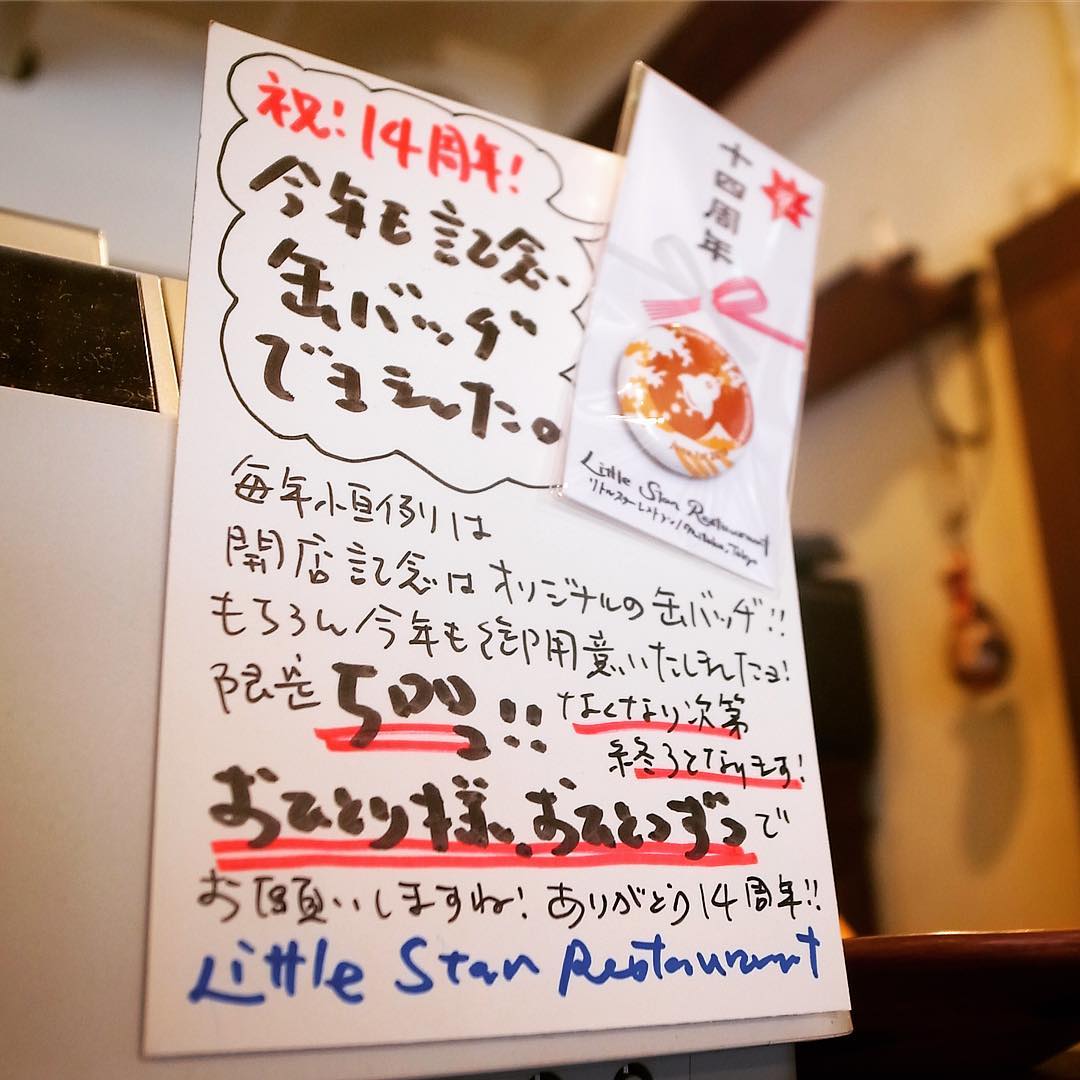 祝!14周年!
今年も記念
缶バッヂ
できました。
毎年恒例は
開店記念はオリジナルの缶バッヂ!!
もちろん今年も御用意いたしましたョ!
限定500コ!! なくなり次第
終了となります!
おひとり様、おひとつずつで
お願いしますね! ありがとう14周年!!
Little Star Restaurant
十四周年
祝
Little Star Restaurant
リトルスターレストラン/Mitaka, Tokyo